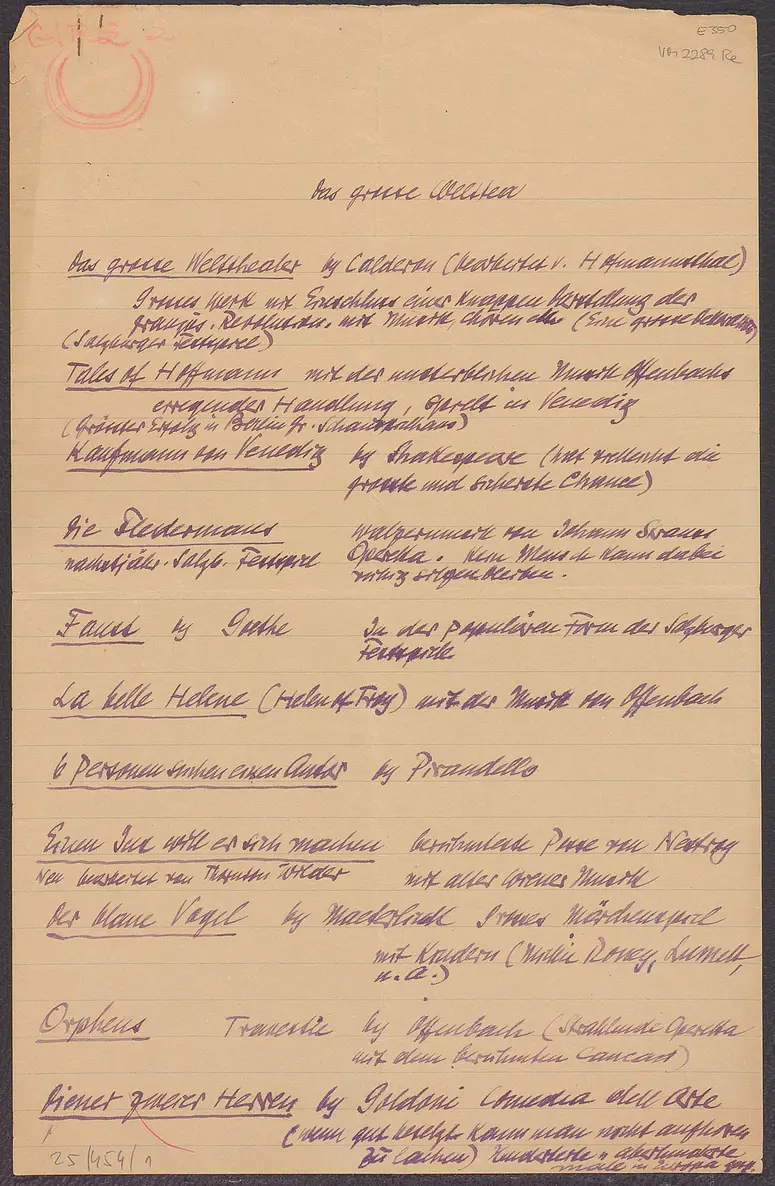 E350
Von 2289 Re
Das grosse Welttea
Das grosse Welttheater by Calderon (bearbeitet v. Hofmannsthal)
Grosses Werk mit Einschluss einer knappen Darstellung der
französ. Revolution. mit Musik, Chören etc (Eine grosse
(Salzburger Festspiel)
Tales of Hoffmann mit der unsterblichen Musik Offenbachs
erregender Handlung, spielt in Venedig
(Grösster Erfolg in Berlin Gr. Schauspielhaus)
Kaufmann von Venedig by Shakespeare (hat vielleicht die
grösste und sicherste Chance)
Die Fledermaus Walzermusik von Johann Strauss
Operetta. Kein Mensch kann dabei
nächstjähr. Salzb. Festspiel
ruhig sitzen bleiben.
Faust by Goethe In der populären Form der Salzburger
Festspiele
La belle Helene (Helen of Troy) mit der Musik von Offenbach
6 Personen suchen einen Autor by Pirandello
Einen Jux will er sich machen berühmteste Posse von Nestroy
Neu bearbeitet von Thornton Wilder mit alter Wiener Musik
Der blaue Vogel by Maeterlinck Grosses Märchenspiel
mit Kindern (Mickie Roney,
u. a.)
Orpheus Travestie by Offenbach (Strahlende Operetta
mit dem berühmten Cancan)
Diener zweier Herren by Goldoni Comedia dell Arte
(wenn gut besetzt kann man nicht aufhören
zu lachen) Hunderte u. aberhunderte
male in Europa
25/454/1